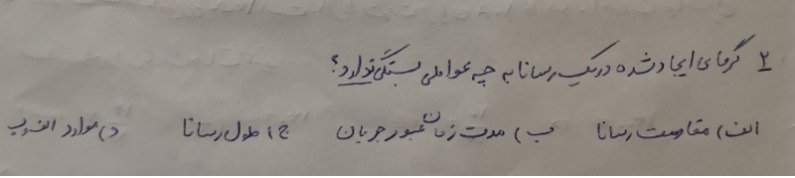 ۲ گرمای ایجاد شده در یک رسانا به چه عواملی بستگی ندارد؟
الف) مقاومت رسانا ب) مدت زمان عبور جریان ج) طول رسانا د) موارد الف و ب